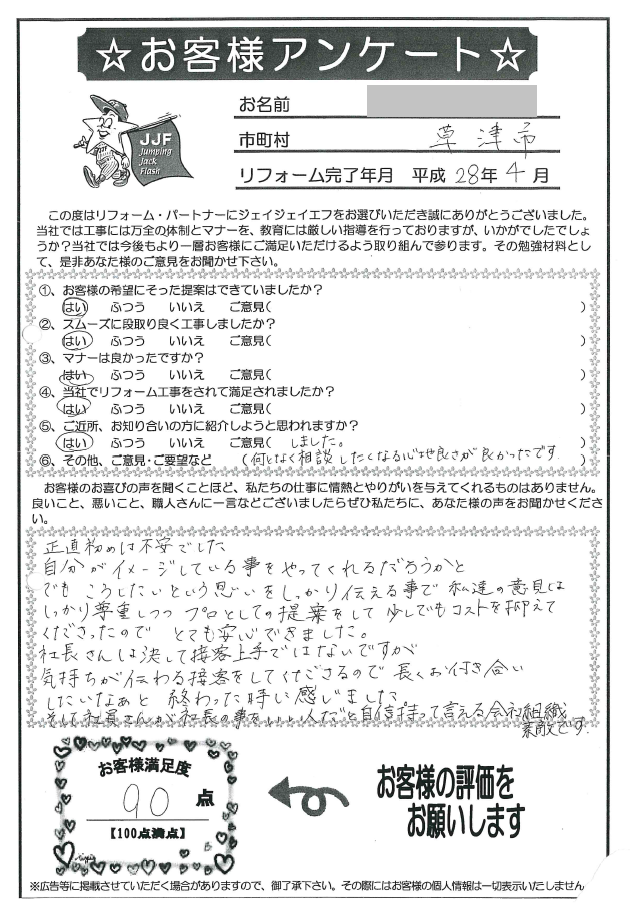 ☆お客様アンケート☆
お名前
JJF
Jumping
Jack
Flash
市町村 草津市
リフォーム完了年月 平成 28年 4月
この度はリフォーム・パートナーにジェイジェイエフをお選びいただき誠にありがとうございました。
当社では工事には万全の体制とマナーを、教育には厳しい指導を行っておりますが、いかがでしたでしょ
うか？当社では今後もより一層お客様にご満足いただけるよう取り組んで参ります。その勉強材料とし
て、是非あなた様のご意見をお聞かせ下さい。
①、お客様の希望にそった提案はできていましたか？
はい ふつう いいえ ご意見( )
②、スムーズに段取り良く工事しましたか？
はい ふつう いいえ ご意見( )
③、マナーは良かったですか？
はい ふつう いいえ ご意見( )
④、当社でリフォーム工事をされて満足されましたか？
はい ふつう いいえ ご意見( )
⑤、ご近所、お知り合いの方に紹介しようと思われますか？
はい ふつう いいえ ご意見( しました。 )
⑥、その他、ご意見・ご要望など (何となく相談したくなる心地良さが良かったです )
お客様のお喜びの声を聞くことほど、私たちの仕事に情熱とやりがいを与えてくれるものはありません。
良いこと、悪いこと、職人さんに一言などございましたらぜひ私たちに、あなた様の声をお聞かせくださ
い。
正直初めは不安でした
自分がイメージしている事をやってくれるだろうかと
でも こうしたいという思いをしっかり伝える事で 私達の意見は
しっかり尊重しつつ プロとしての提案をして 少しでもコストを抑えて
くださったので とても安心できました。
社長さんは決して接客上手ではないですが
気持ちが伝わる接客をしてくださるので 長くお付き合い
したいなあと 終わった時に感じました
そして社員さんが社長の事をいい人だと自信持って言える会社組織
素敵です.
お客様満足度
90 点
【100点満点】
お客様の評価を
お願いします
※広告等に掲載させていただく場合がありますので、御了承下さい。その際にはお客様の個人情報は一切表示いたしません